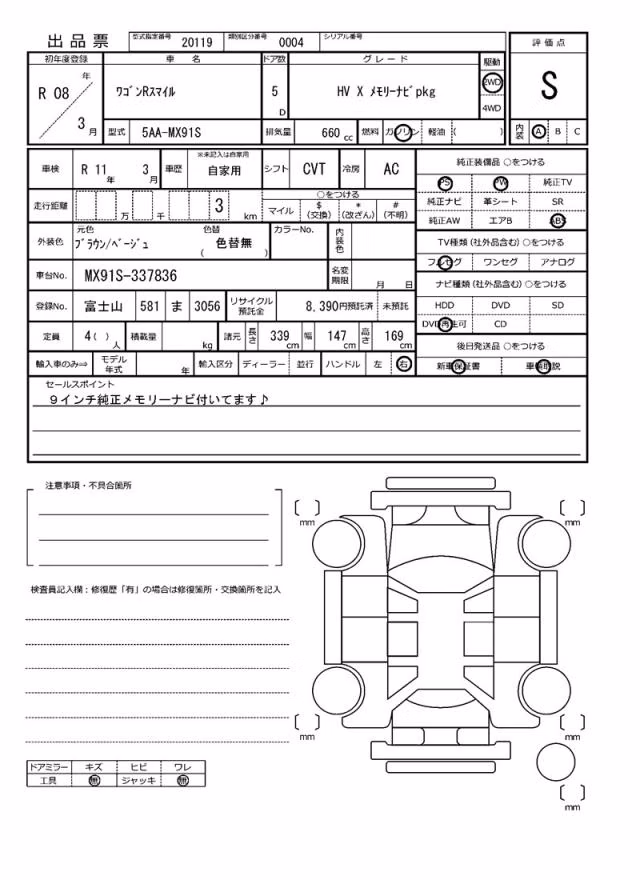 出品票 型式指定番号 20119 類別区分番号 0004 シリアル番号
評価点
S
内装 A B C
初年度登録 車名 ドア数 グレード 駆動
R 08 年 3 月 ワゴンRスマイル 5 D HV X メモリーナビpkg 2WD 4WD
型式 5AA-MX91S 排気量 660 cc 燃料 ガソリン 軽油 ( )
車検 R 11 年 3 月 車歴 ※未記入は自家用 自家用 シフト CVT 冷房 AC
走行距離 万 千 3 km ○をつける
マイル $ (交換) * (改ざん) # (不明)
外装色 元色 ブラウン/ベージュ 色替 ( 色替無 ) カラーNo. 内装色
車台No. MX91S-337836 名変期限 月 日
登録No. 富士山 581 ま 3056 リサイクル預託金 8,390円預託済 未預託
定員 4( ) 人 積載量 kg 諸元 長さ 339 cm 幅 147 cm 高さ 169 cm
輸入車のみ⇒ モデル年式 年 輸入区分 ディーラー 並行 ハンドル 左 右
純正装備品 ○をつける
PS PW 純正TV
純正ナビ 革シート SR
純正AW エアB ABS
TV種類(社外品含む)○をつける
フルセグ ワンセグ アナログ
ナビ種類(社外品含む)○をつける
HDD DVD SD
DVD再生可 CD
後日発送品 ○をつける
新車保証書 車輌取説
セールスポイント
9インチ純正メモリーナビ付いてます♪
注意事項・不具合箇所
検査員記入欄:修復歴「有」の場合は修復箇所・交換箇所を記入
ドアミラー キズ ヒビ ワレ
工具 無 ジャッキ 無
〔 〕 mm
〔 〕 mm
〔 〕 mm
〔 〕 mm
〔 〕 mm